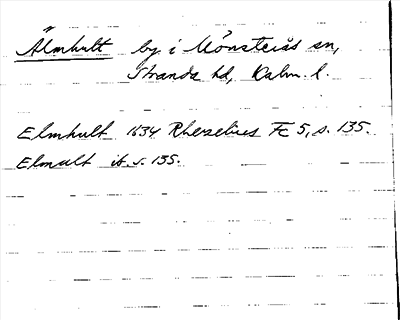 Älmhult by i Mönsterås sn,
Stranda hd, Kalm. l.
Elmhult 1634 Rhezelius Fc 5, s. 135.
Elmult ib. s. 135.